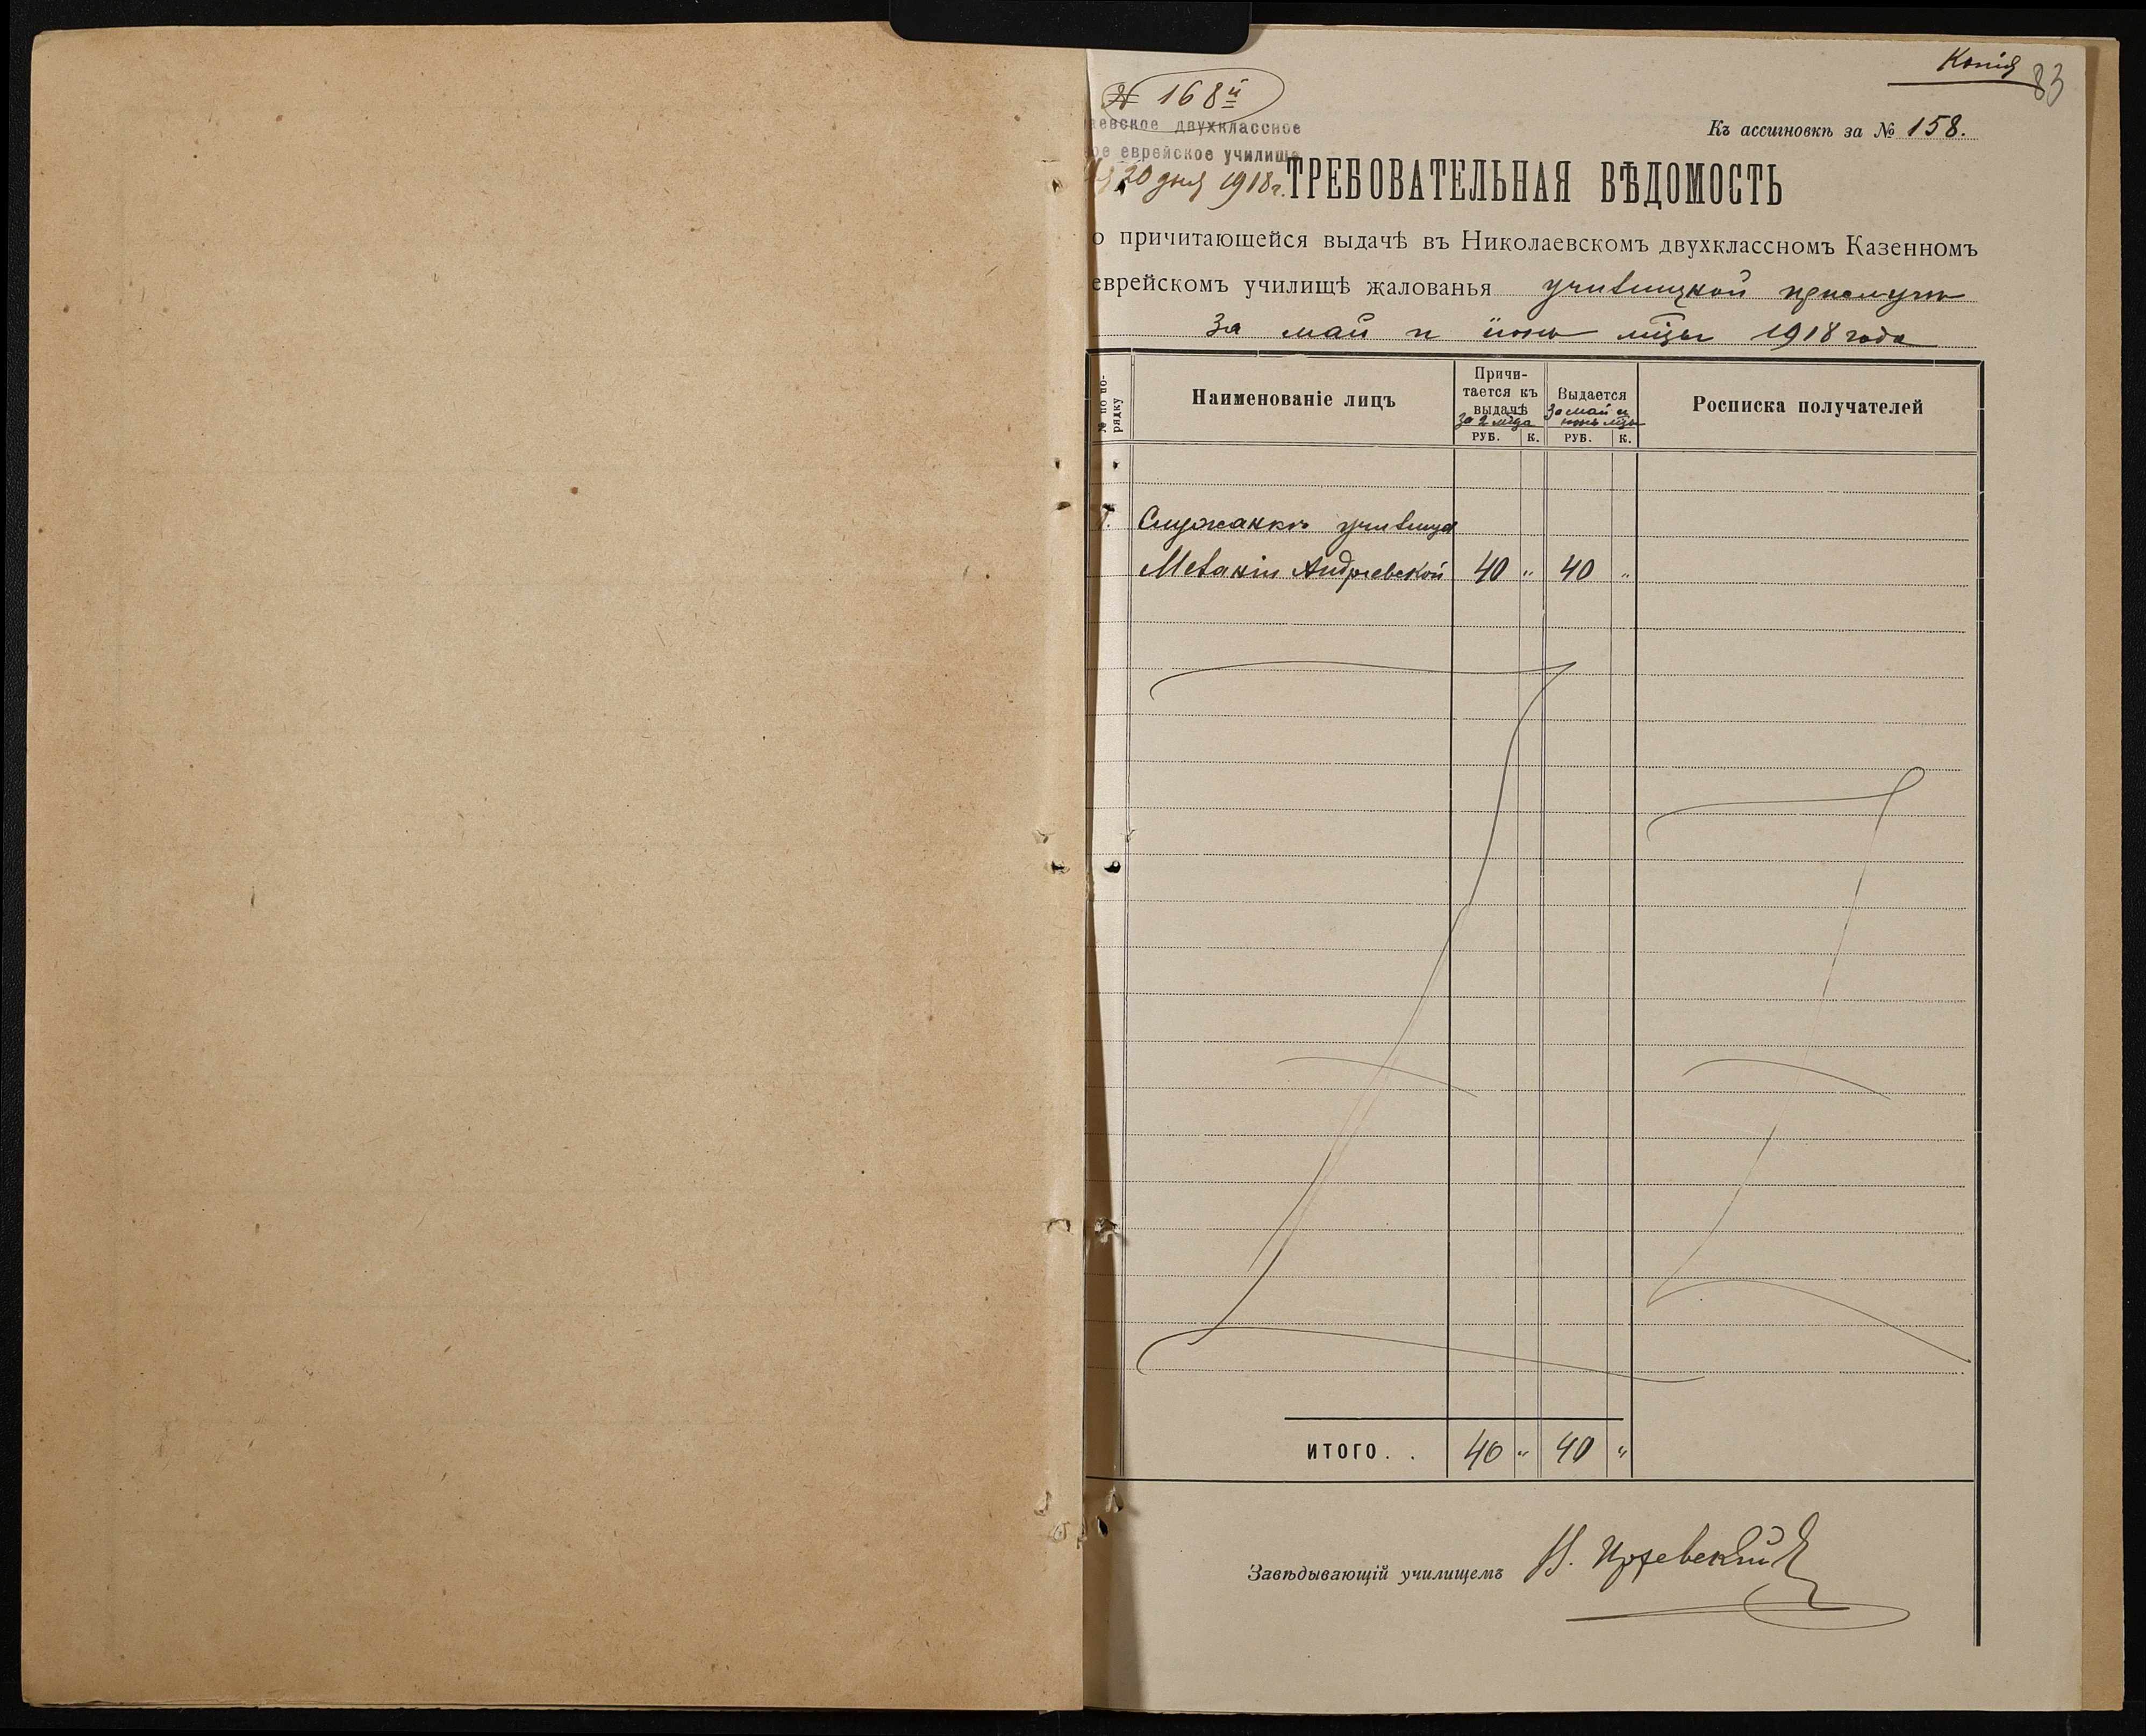 Копія
83
№ 168й
Къ ассигновкѣ за № 158.
аевское двухклассное
ое еврейское училище
20 дня 1918 г.
ТРЕБОВАТЕЛЬНАЯ ВѢДОМОСТЬ
о причитающейся выдачѣ въ Николаевскомъ двухклассномъ Казенномъ
еврейскомъ училищѣ жалованья училищной прислугѣ
За май и іюнь мѣсы 1918 года
№ по по-
рядку
Наименованіе лицъ
Причи-
тается къ
выдачѣ
за 2 мѣца
РУБ. К.
Выдается
За май и
іюнь мѣцы
РУБ. К.
Росписка получателей
1. Служанкѣ училища
Меланіи Андріевской 40 " 40 "
ИТОГО. . 40 " 40 "
Завѣдывающій училищемъ